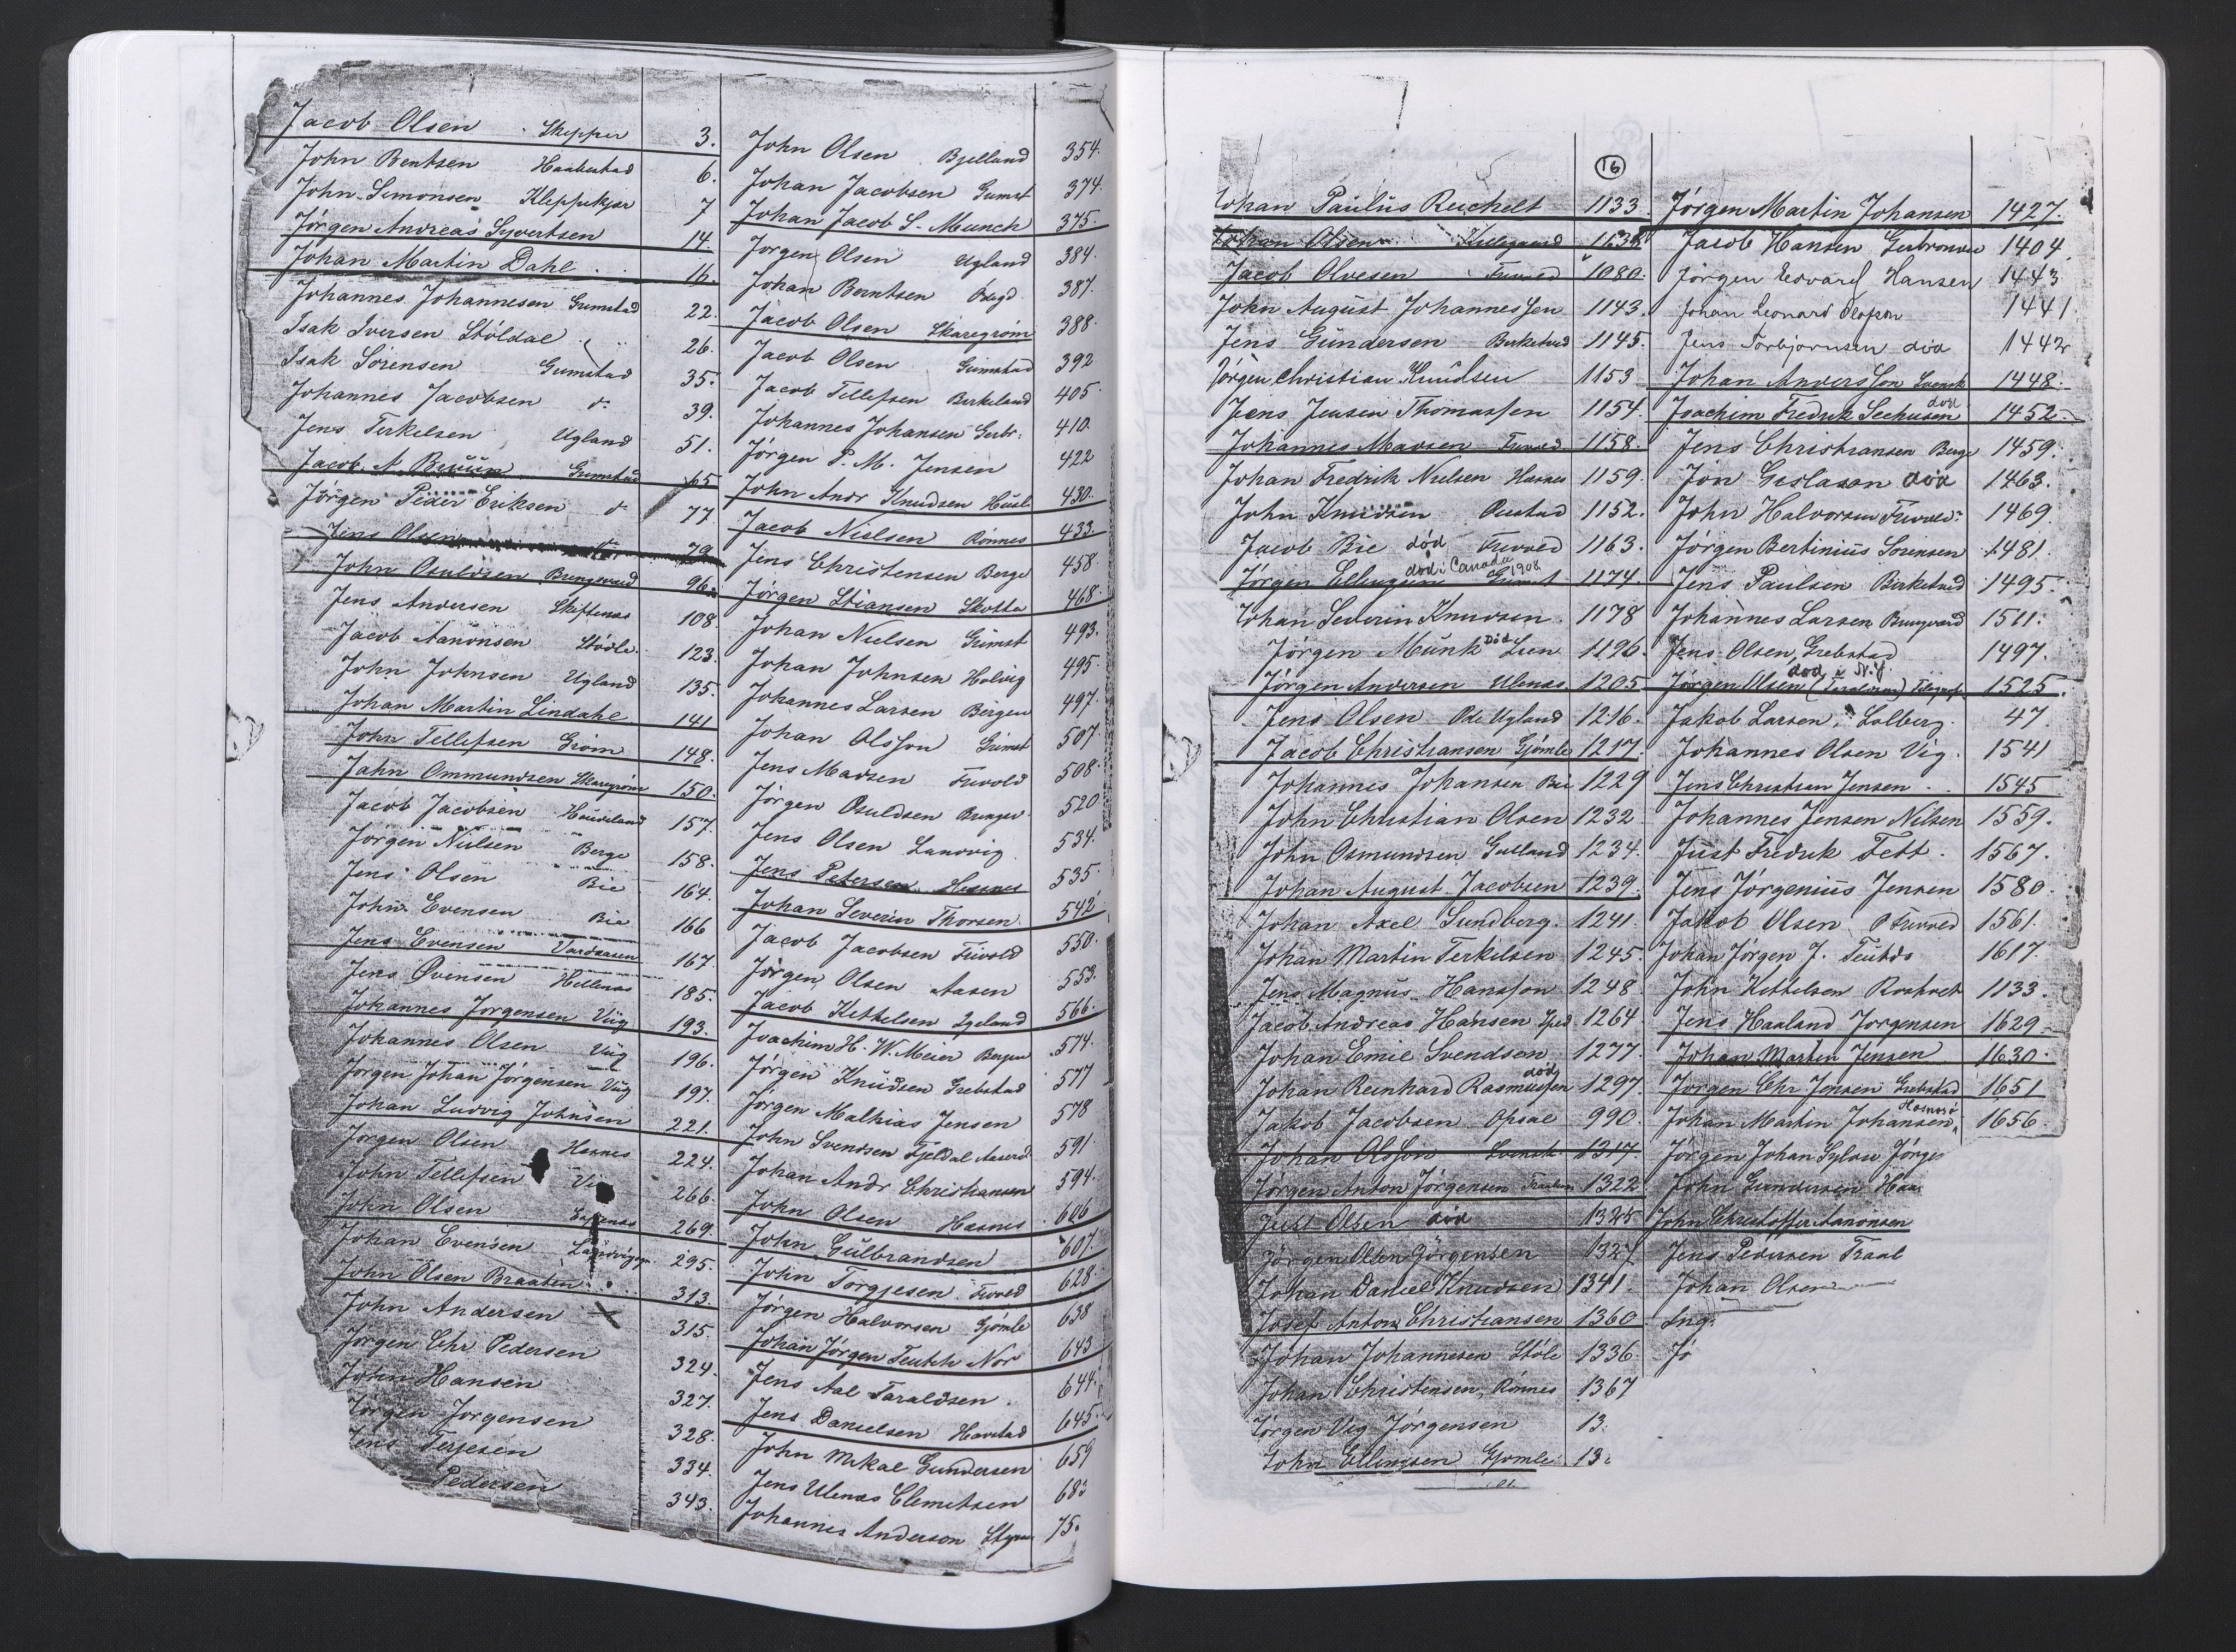 Jacob Olsen Skipper 3.
John Bentsen Haabestad 6.
John Simonsen Kleppekjær 7
Jörgen Andreas Syvertsen 14.
Johan Martin Dahl 16.
Johannes Johannesen Grimstad 22.
Isak Iversen Stöldal 26.
Isak Sörensen Grimstad 35.
Johannes Jacobsen do 39.
Jens Terkelsen Ugland 51.
Jacob A. Bruun Grimstad 65
Jörgen Peder Eriksen do 77
Jens Olsen 79
John Osuldsen Bringsværd 96.
Jens Andersen Skiftenes 108.
Jacob Aanonsen Stödle 123.
John Johnsen Ugland 135.
Johan Martin Lindahl 141
John Tellefsen Gröm 148.
Jahn Ommundsen Skaregröm 150.
Jacob Jacobsen Haudeland 157.
Jörgen Nielsen Berge 158.
Jens Olsen Bie 164.
John Evensen Bie 166
Jens Evensen Vardaasen 167.
Jens Øvensen Hellenes 185.
Johannes Jorgensen Viig 193.
Johannes Olsen Viig 196.
Jörgen Johan Jörgensen Viig 197.
Johan Ludvig Johnsen 221.
Jörgen Olsen Hasnes 224.
John Tellefsen 266.
John Olsen 269.
Johan Evensen Landvigs 295.
John Olsen Braaten 313.
John Andersen 315.
Jörgen Chr Pedersen 324.
John Hansen 327.
Jörgen Jorgensen 328.
Jens Terjesen 334.
Pedersen 343.
John Olsen Bjelland 354.
Johan Jacobsen Grimst 374.
Johan Jacob S. Munch 375.
Jorgen Olsen Ugland 384.
Johan Berntsen 387.
Jacob Olsen Skaregröm 388.
Jacob Olsen Grimstad 392
Jacob Tellefsen Birkeland 405
Johannes Johansen Gerbr. 410.
Jörgen P. M. Jensen 422
John Andr Knudsen 430.
Jacob Nielsen Rönnes 433.
Jens Christensen Berge 458
Jörgen Stiansen Skotta 468.
Johan Nielsen Grimst 493.
Johan Johnsen Holvig 495.
Johannes Larsen Bergen 497.
Johan Olsson Grimst 507.
Jens Madsen Frivold 508.
Jörgen Osuldsen Bringsv 520
Jens Olsen Landvig 534.
Jens Petersen Hesnes 535
Johan Severin Thorsen. 542
Jacob Jacobsen Frivold 550.
Jörgen Olsen Aasen 553.
Jacob Kittelsen Igeland 566.
Joachim H. W. Meier Bergen 574.
Jörgen Knudsen Grebstad 577
Jorgen Mathias Jensen 578
John Svendsen Fjeldal 591
Johan Andr Christiansen 594.
John Olsen Hasnes 606
John Gulbrandsen 607.
John Torgjesen Frivold 628.
Jörgen Halvorsen Gjömle 638
Johan Jörgen Teutch Nor 643
Jens Aal Taraldsen. 644.
Jens Danielsen Havstad 645.
John Mikal Gundersen 659
Jens Ulenes Clemetsen 683
Johannes Anderson 75.
16
Johan Paulus Reichelt 1133
Johan Olsen
Jacob Olvesen Frivold 1080.
John August Johannessen 1143.
Jens Gundersen Birketved 1145.
Jörgen Christian Knudsen 1153
Jens Jensen Thomassen 1154.
Johannes Madsen Frivold 1158.
Johan Fredrik Nielsen Hasnes 1159.
John Knudsen 1152.
Jacob Bie död Frivold 1163.
död i Canada 1908
Jörgen Ellingsen Grimst 1174
Johan Severin Knudsen. 1178
Jörgen Munk Död Lien 1196
Jörgen Andersen Ulenes 1205
Jens Olsen Ode Ugland 1216.
Jacob Christiansen Gjömle 1217.
Johannes Johansen Bie 1229
John Christian Olsen 1232
John Osmundsen Gulland 1234.
Johan August Jacobsen 1239.
Johan Axel Sundberg. 1241.
Johan Martin Terkilsen 1245.
Jens Magnus Hansson 1248.
Jacob Andreas Hansen 1264.
Johan Emil Svendsen 1277.
Johan Reinhard Rasmussen död 1297.
Jakob Jacobsen Opsal 990.
Johan Olsson Svensk 1317
Jörgen Anton Jörgensen 1322
Just Olsen död 1325
Jörgen Olsen Jörgensen 1327
Johan Daniel Knudsen 1341.
Josef Anton Christiansen 1360.
Johan Johannesen Stöle 1336.
Johan Christensen, Rönnes 1367
Jörgen Vig Jörgensen 13.
John Ellingsen Gjömle 13.
Jörgen Martin Johansen 1427.
Jacob Hansen Gerbronden 1404
Jörgen Edvard Hansen 1443
Johan Leonard Olofson 1441
Jens Torbjörnsen död 1442
Johan Andersson Svensk 1448.
Joachim Fredrik Seehusen död 1452.
Jens Christiansen Berge 1459.
Jon Gislason död 1463.
John Halvorsen Frivold 1469.
Jörgen Bertinius Sörensen 1481.
Jens Paulsen Birketved 1495.
Johannes Larsen Bringsværd 1511.
Jens Olsen, Grebstad 1497.
död i N.Y.
Jorgen Olsen 1525.
Jakob Larsen, Solberg. 47
Johannes Olsen Vig. 1541
Jens Christian Jensen 1545
Johannes Jensen Nilsen 1559.
Just Fredrik Fett. 1567.
Jens Jörgenius Jensen 1580.
Jakob Olsen Frivold 1561.
Johan Jörgen J. 1617.
John Kittelsen 1133.
Jens Haaland Jorgensen 1629
Johan Martin Jensen 1630.
Jorgen Chr Jensen Grebstad 1651
Johan Martin Johansen Hasnesö 1656
Jörgen Johan Sylvu Jörge
John Gundersen
John Christoffer Aanonsen
Jens Pedersen
Johan Olsen
Ing.
Jö